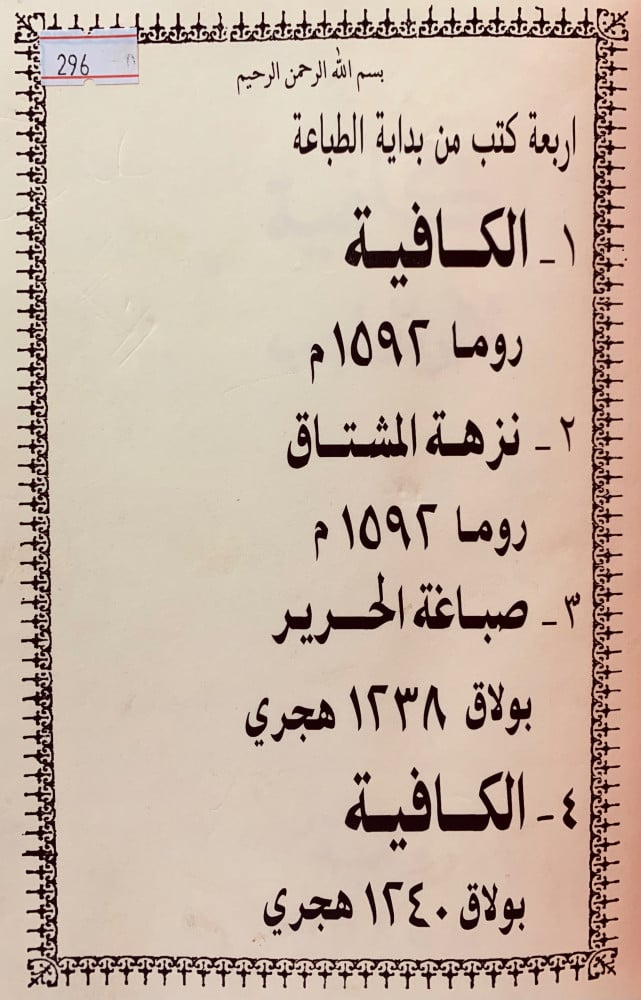 296
بسم الله الرحمن الرحيم
اربعة كتب من بداية الطباعة
١ - الكافية
روما ١٥٩٢ م
٢ - نزهة المشتاق
روما ١٥٩٢ م
٣ - صباغة الحرير
بولاق ١٢٣٨ هجري
٤ - الكافية
بولاق ١٢٤٠ هجري